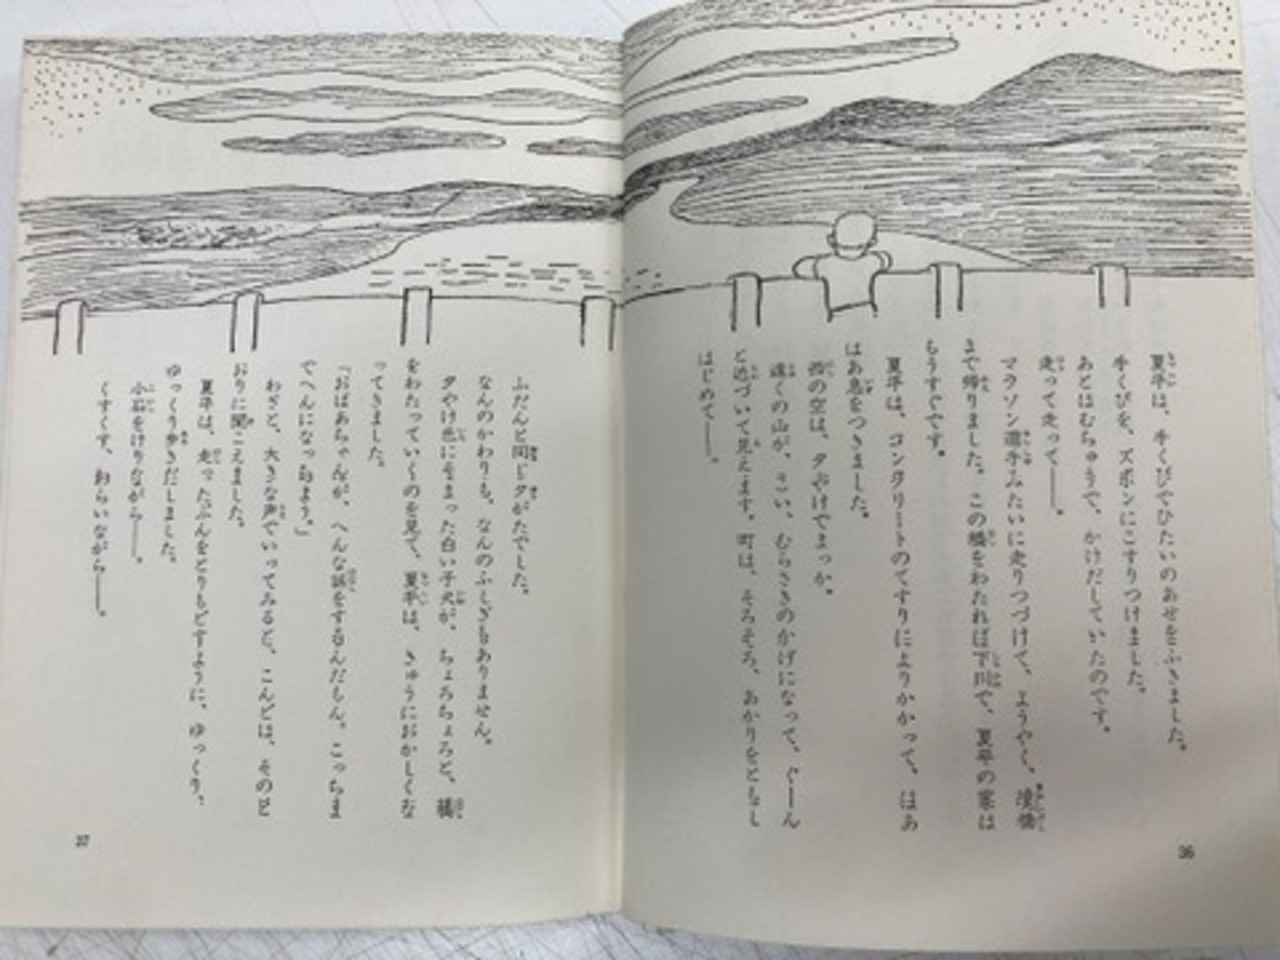 夏平は、手くびでひたいのあせをふきました。
手くびを、ズボンにこすりつけました。
あとはむちゅうで、かけだしていたのです。
走って走って――。
マラソン選手みたいに走りつづけて、ようやく、境橋
まで帰りました。この橋をわたれば下川で、夏平の家は
もうすぐです。
夏平は、コンクリートのてすりによりかかって、はあ
はあ息をつきました。
西の空は、夕やけでまっか。
遠くの山が、こい、むらさきのかげになって、ぐーん
と近づいて見えます。町は、そろそろ、あかりをともし
はじめて――。
36
ふだんと同じ夕がたでした。
なんのかわりも、なんのふしぎもありません。
夕やけ色にそまった白い子犬が、ちょろちょろと、橋
をわたっていくのを見て、夏平は、きゅうにおかしくな
ってきました。
「おばあちゃんが、へんな話をするんだもん。こっちま
でへんになっちまう。」
わざと、大きな声でいってみると、こんどは、そのと
おりに聞こえました。
夏平は、走ったぶんをとりもどすように、ゆっくり、
ゆっくり歩きだしました。
小石をけりながら――。
くすくす、わらいながら――。
37